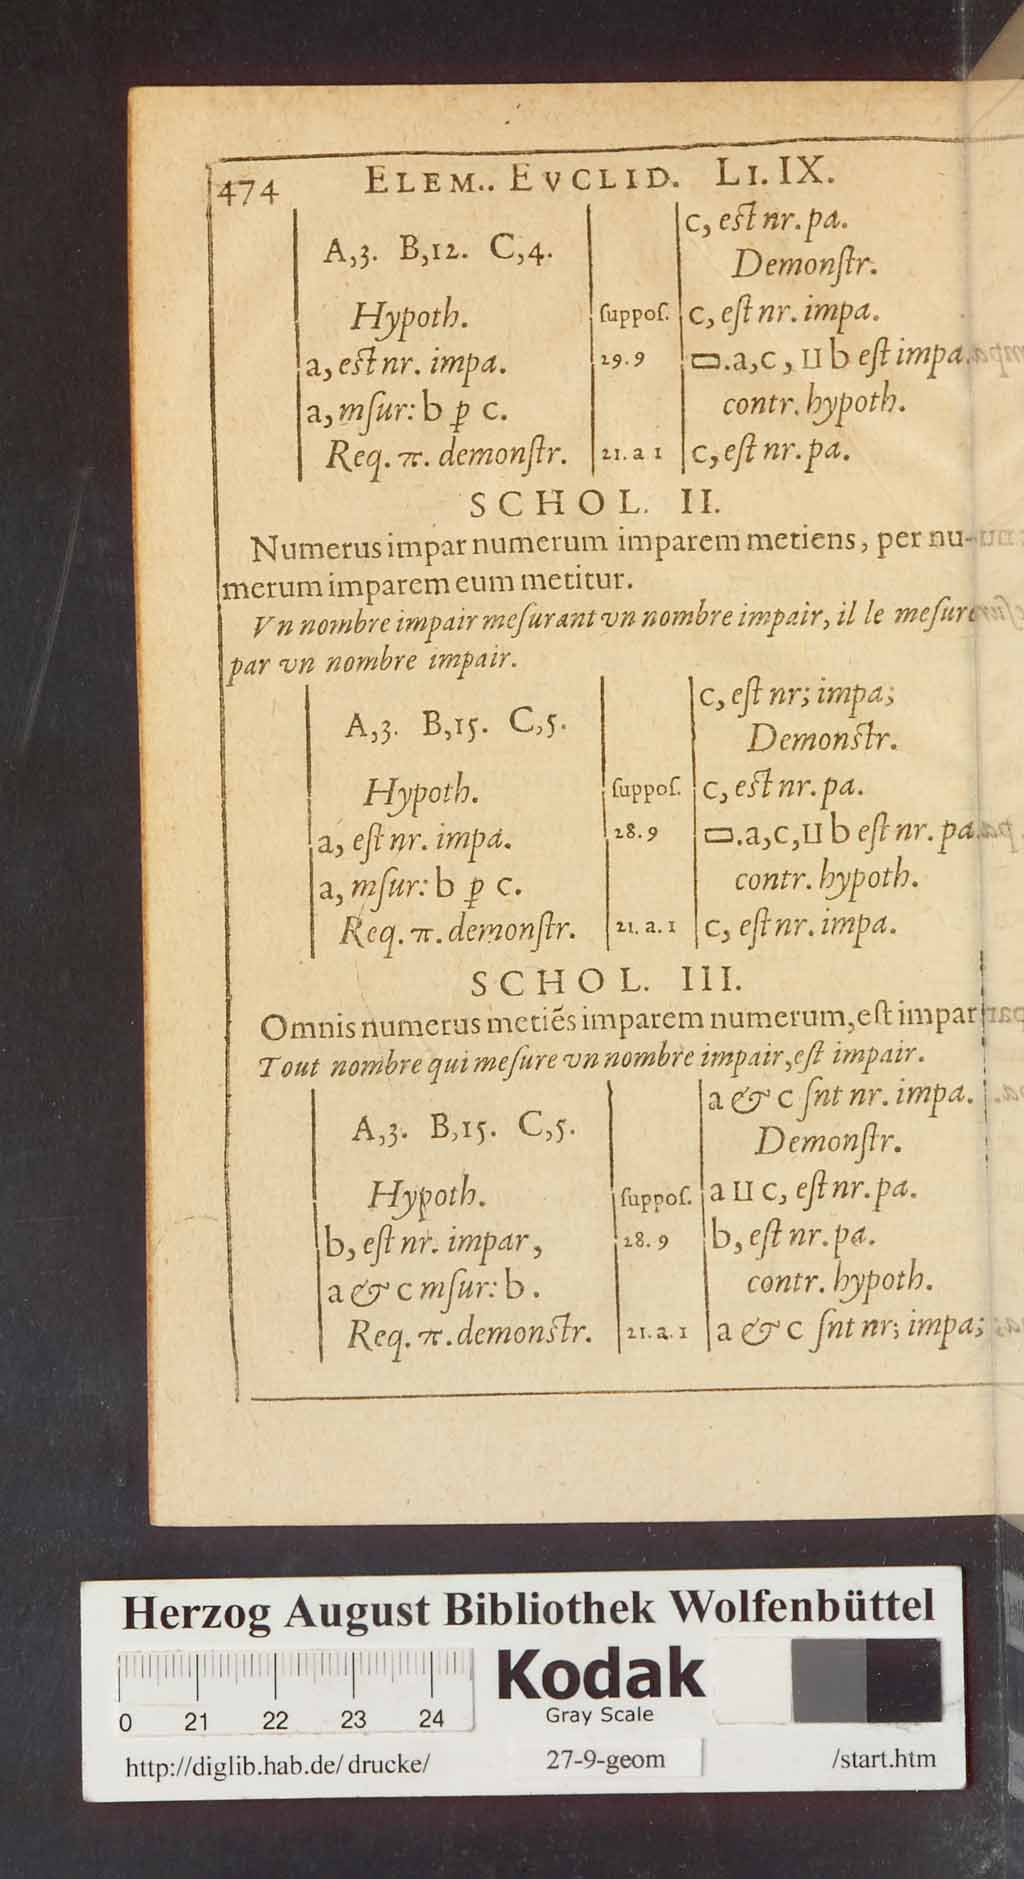 474 ELEM.. EVCLID. LI. IX.
A,3. B,12. C,4.
Hypoth.
a, est nr. impa.
a, mſur: b ꝑ c.
Req. π. demonſtr.
ſuppoſ.
29.9
21. a 1
c, est nr. pa.
Demonſtr.
c, eſt nr. impa.
▭.a,c, ⊔⊔ b eſt impa.
contr. hypoth.
c, eſt nr. pa.
SCHOL. II.
Numerus impar numerum imparem metiens, per nu-
merum imparem eum metitur.
Vn nombre impair meſurant vn nombre impair, il le meſure
par vn nombre impair.
A,3. B,15. C,5.
Hypoth.
a, eſt nr. impa.
a, mſur: b ꝑ c.
Req. π. demonſtr.
ſuppoſ.
28.9
21. a. 1
c, eſt nr; impa;
Demonstr.
c, est nr. pa.
▭.a,c, ⊔⊔ b eſt nr. pa.
contr. hypoth.
c, eſt nr. impa.
SCHOL. III.
Omnis numerus metiẽs imparem numerum, eſt impar
Tout nombre qui meſure vn nombre impair, eſt impair.
A,3. B,15. C,5.
Hypoth.
b, eſt nr. impar,
a & c mſur: b.
Req. π. demonstr.
ſuppoſ.
28.9
21. a. 1
a & c ſnt nr. impa.
Demonſtr.
a ⊔⊔ c, eſt nr. pa.
b, eſt nr. pa.
contr. hypoth.
a & c ſnt nr; impa;
Herzog August Bibliothek Wolfenbüttel
0 21 22 23 24
Kodak
Gray Scale
http://diglib.hab.de/ drucke/ 27-9-geom /start.htm